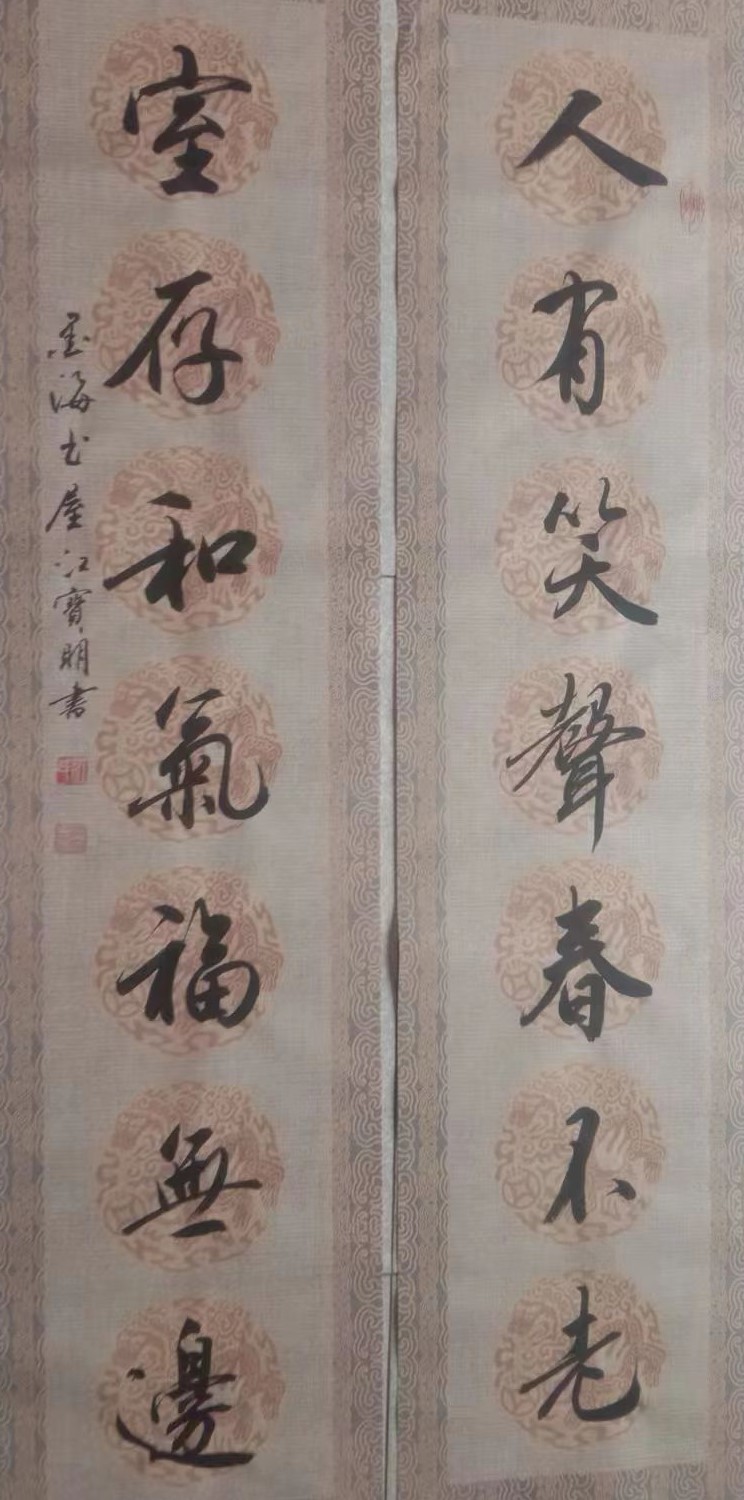 人有笑聲春不老
室存和氣福無邊
墨海书屋江寶明書